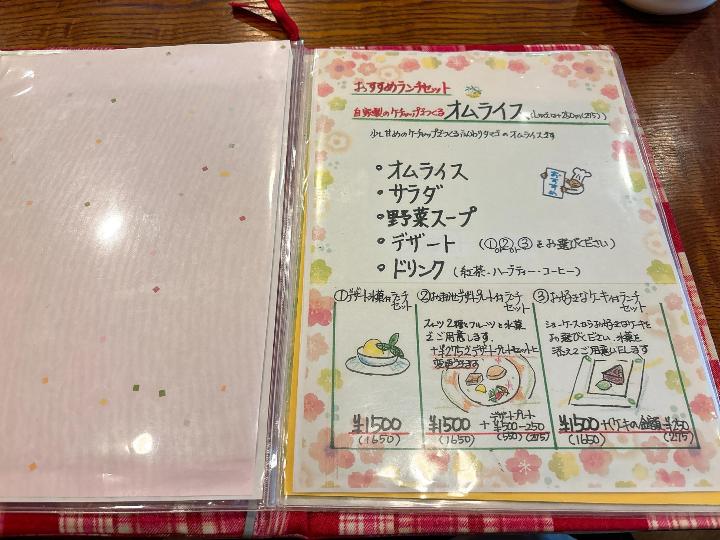 おすすめランチセット
自家製のケチャップでつくる オムライス
少し甘めのケチャップでつくるふんわりタマゴのオムライスです
・オムライス
・サラダ
・野菜スープ
・デザート (①or②or③をお選びください)
・ドリンク (紅茶・ハーブティー・コーヒー)
おすすめ
①デザート氷菓付ランチセット
¥1500
(1650)
②お任せデザートプレート付ランチセット
スイーツ2種とフルーツと氷菓
をご用意します。
変更できます
¥1500
(1650)
+
デザートプレート
¥500-250
(550) (275)
③お好きなケーキ付ランチセット
ショーケースからお好きなケーキを
お選びください。氷菓を
添えてご用意いたします
¥1500+ケーキの金額-¥250
(1650) (275)